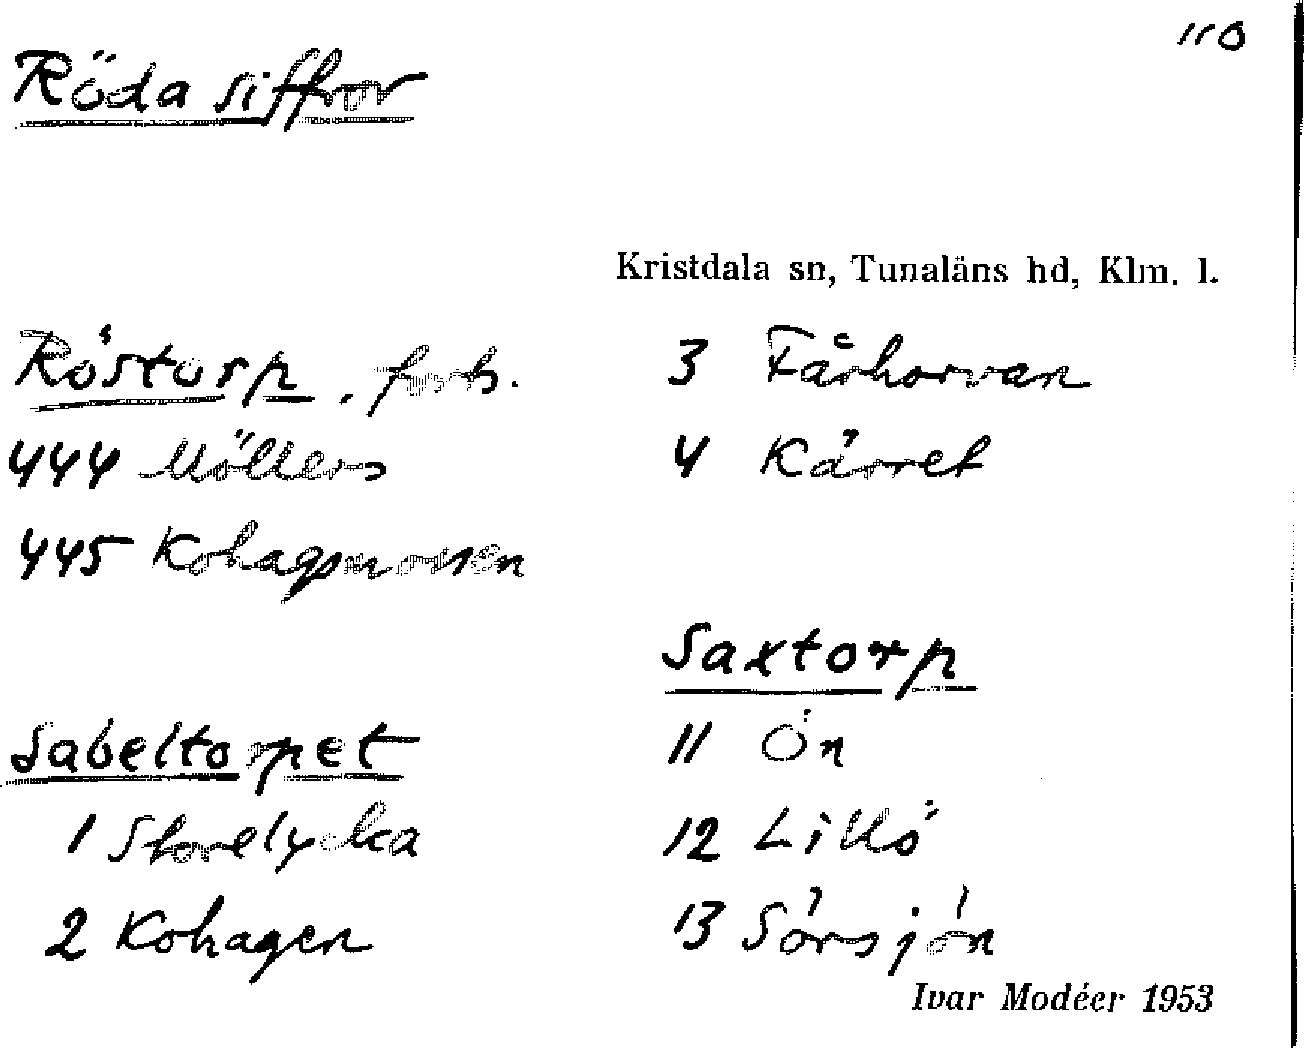 110
Röda siffror
Kristdala sn, Tunaläns hd, Klm. l.
Röstorp, forts.
444 Möllers
445 Kohagsmossen
Sabeltorpet
1 Storelycka
2 Kohagen
3 Fårhorvan
4 Kärret
Saxtorp
11 Ön
12 Lillö
13 Sörsjön
Ivar Modéer 1953